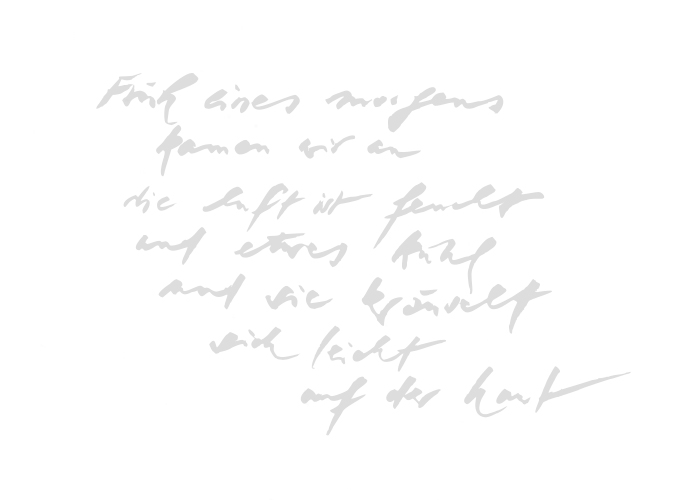 Früh eines morgens
kamen wir an
die luft ist feucht
und etwas kühl
und sie kräuselt
sich leicht
auf der haut